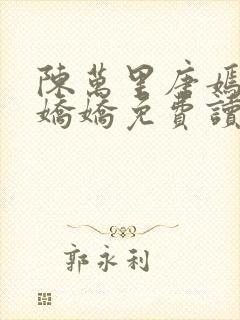 陳萬里唐嫣
嬌嬌免費讀
郭永利